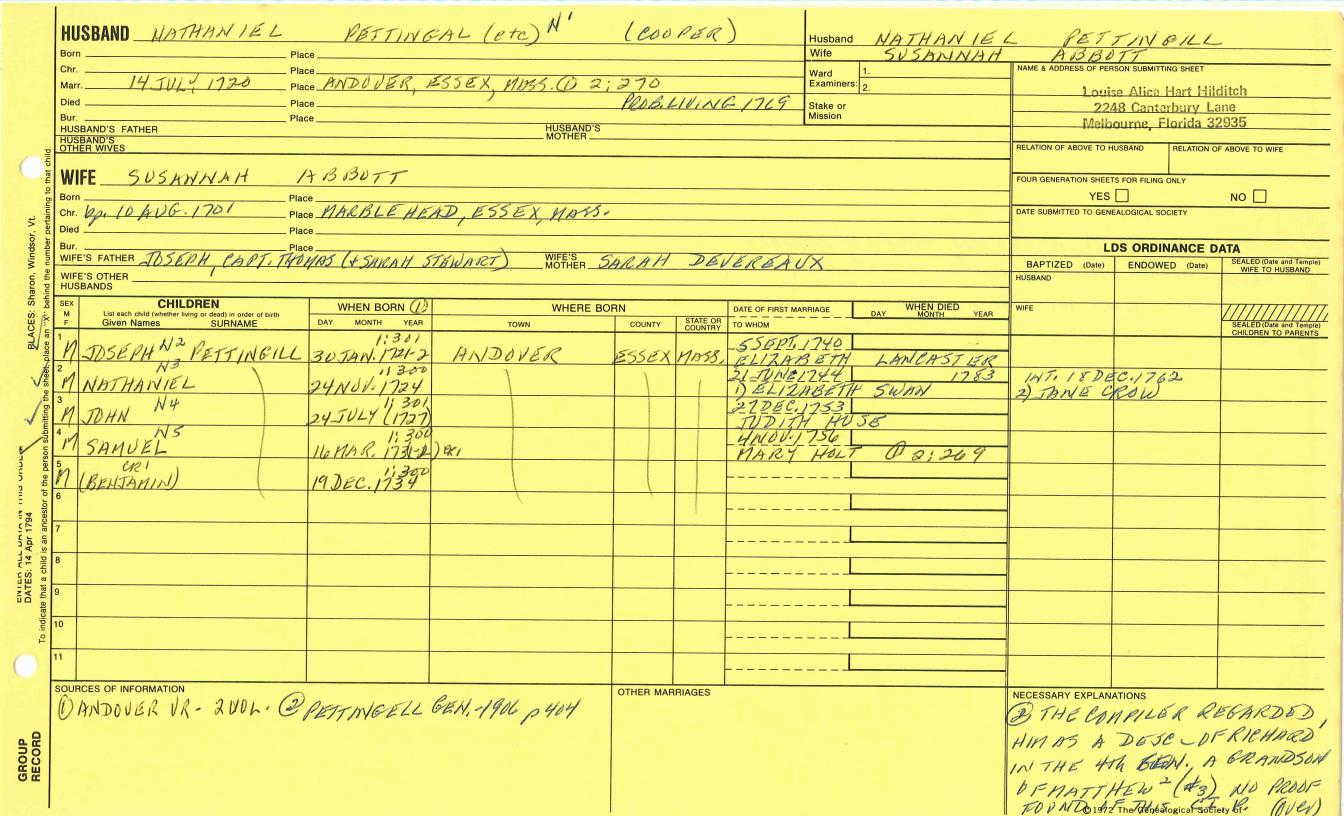 HUSBAND NATHANIEL PETTINGAL (etc) N' (COOPER)
Born Place
Chr. Place
Marr. 14 JULY 1720 Place ANDOVER, ESSEX, MASS. ① 2; 270
Died Place PROB. LIVING 1769
Bur. Place
HUSBAND'S FATHER HUSBAND'S MOTHER
HUSBAND'S OTHER WIVES
WIFE SUSANNAH ABBOTT
Born Place
Chr. bp. 10 AUG. 1701 Place MARBLEHEAD, ESSEX, MASS.
Died Place
Bur. Place
WIFE'S FATHER JOSEPH, CAPT. THOMAS (+ SARAH STEWART) WIFE'S MOTHER SARAH DEVEREAUX
WIFE'S OTHER HUSBANDS
Husband NATHANIEL PETTINGILL
Wife SUSANNAH ABBOTT
Ward Examiners: 1.
2.
Stake or Mission
NAME & ADDRESS OF PERSON SUBMITTING SHEET
Louise Alice Hart Hilditch
2248 Canterbury Lane
Melbourne, Florida 32935
RELATION OF ABOVE TO HUSBAND RELATION OF ABOVE TO WIFE
FOUR GENERATION SHEETS FOR FILING ONLY
YES NO
DATE SUBMITTED TO GENEALOGICAL SOCIETY
LDS ORDINANCE DATA
BAPTIZED (Date) ENDOWED (Date) SEALED (Date and Temple) WIFE TO HUSBAND
HUSBAND
WIFE
SEALED (Date and Temple) CHILDREN TO PARENTS
SEX M F
CHILDREN
List each child (whether living or dead) in order of birth
Given Names SURNAME
WHEN BORN ①
DAY MONTH YEAR
WHERE BORN
TOWN COUNTY STATE OR COUNTRY
DATE OF FIRST MARRIAGE
TO WHOM
WHEN DIED
DAY MONTH YEAR
1 M JOSEPH N2 PETTINGILL 30 JAN. 1721-2 1:301 ANDOVER ESSEX MASS. 5 SEPT. 1740
ELIZABETH LANCASTER
2 M NATHANIEL N3 24 NOV. 1724 1:300 21 JUNE 1744 1783 INT. 18 DEC. 1762
1) ELIZABETH SWAN 2) JANE CROW
3 M JOHN N4 24 JULY (1727) 1:301 27 DEC. 1753
JUDITH HUSE
4 M SAMUEL N5 16 MAR. 1731-2) 1:300 4 NOV. 1756
MARY HOLT ① 2; 269
5 M (BENJAMIN) CR1 19 DEC. 1734 1:300
6
7
8
9
10
11
SOURCES OF INFORMATION
① ANDOVER VR - 2 VOL. ② PETTINGELL GEN.-1906 p 404
OTHER MARRIAGES
NECESSARY EXPLANATIONS
② THE COMPILER REGARDED
HIM AS A DESC - OF RICHARD'
IN THE 4th GEN., A GRANDSON
OF MATTHEW² (#3) NO PROOF
FOUND OF THIS (over)
©1972 The Genealogical Society of
PLACES: Sharon, Windsor, Vt.
To indicate that a child is an ancestor of the person submitting the sheet, place an "X" behind the number pertaining to that child
ENTER ALL DATA IN THIS ORDER
DATES: 14 Apr 1794
GROUP RECORD